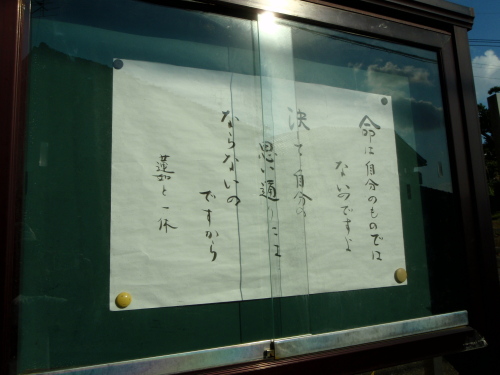 命は自分のものでは
ないのですよ
決て自分の
思い通りには
ならないの
ですから
蓮如と一休